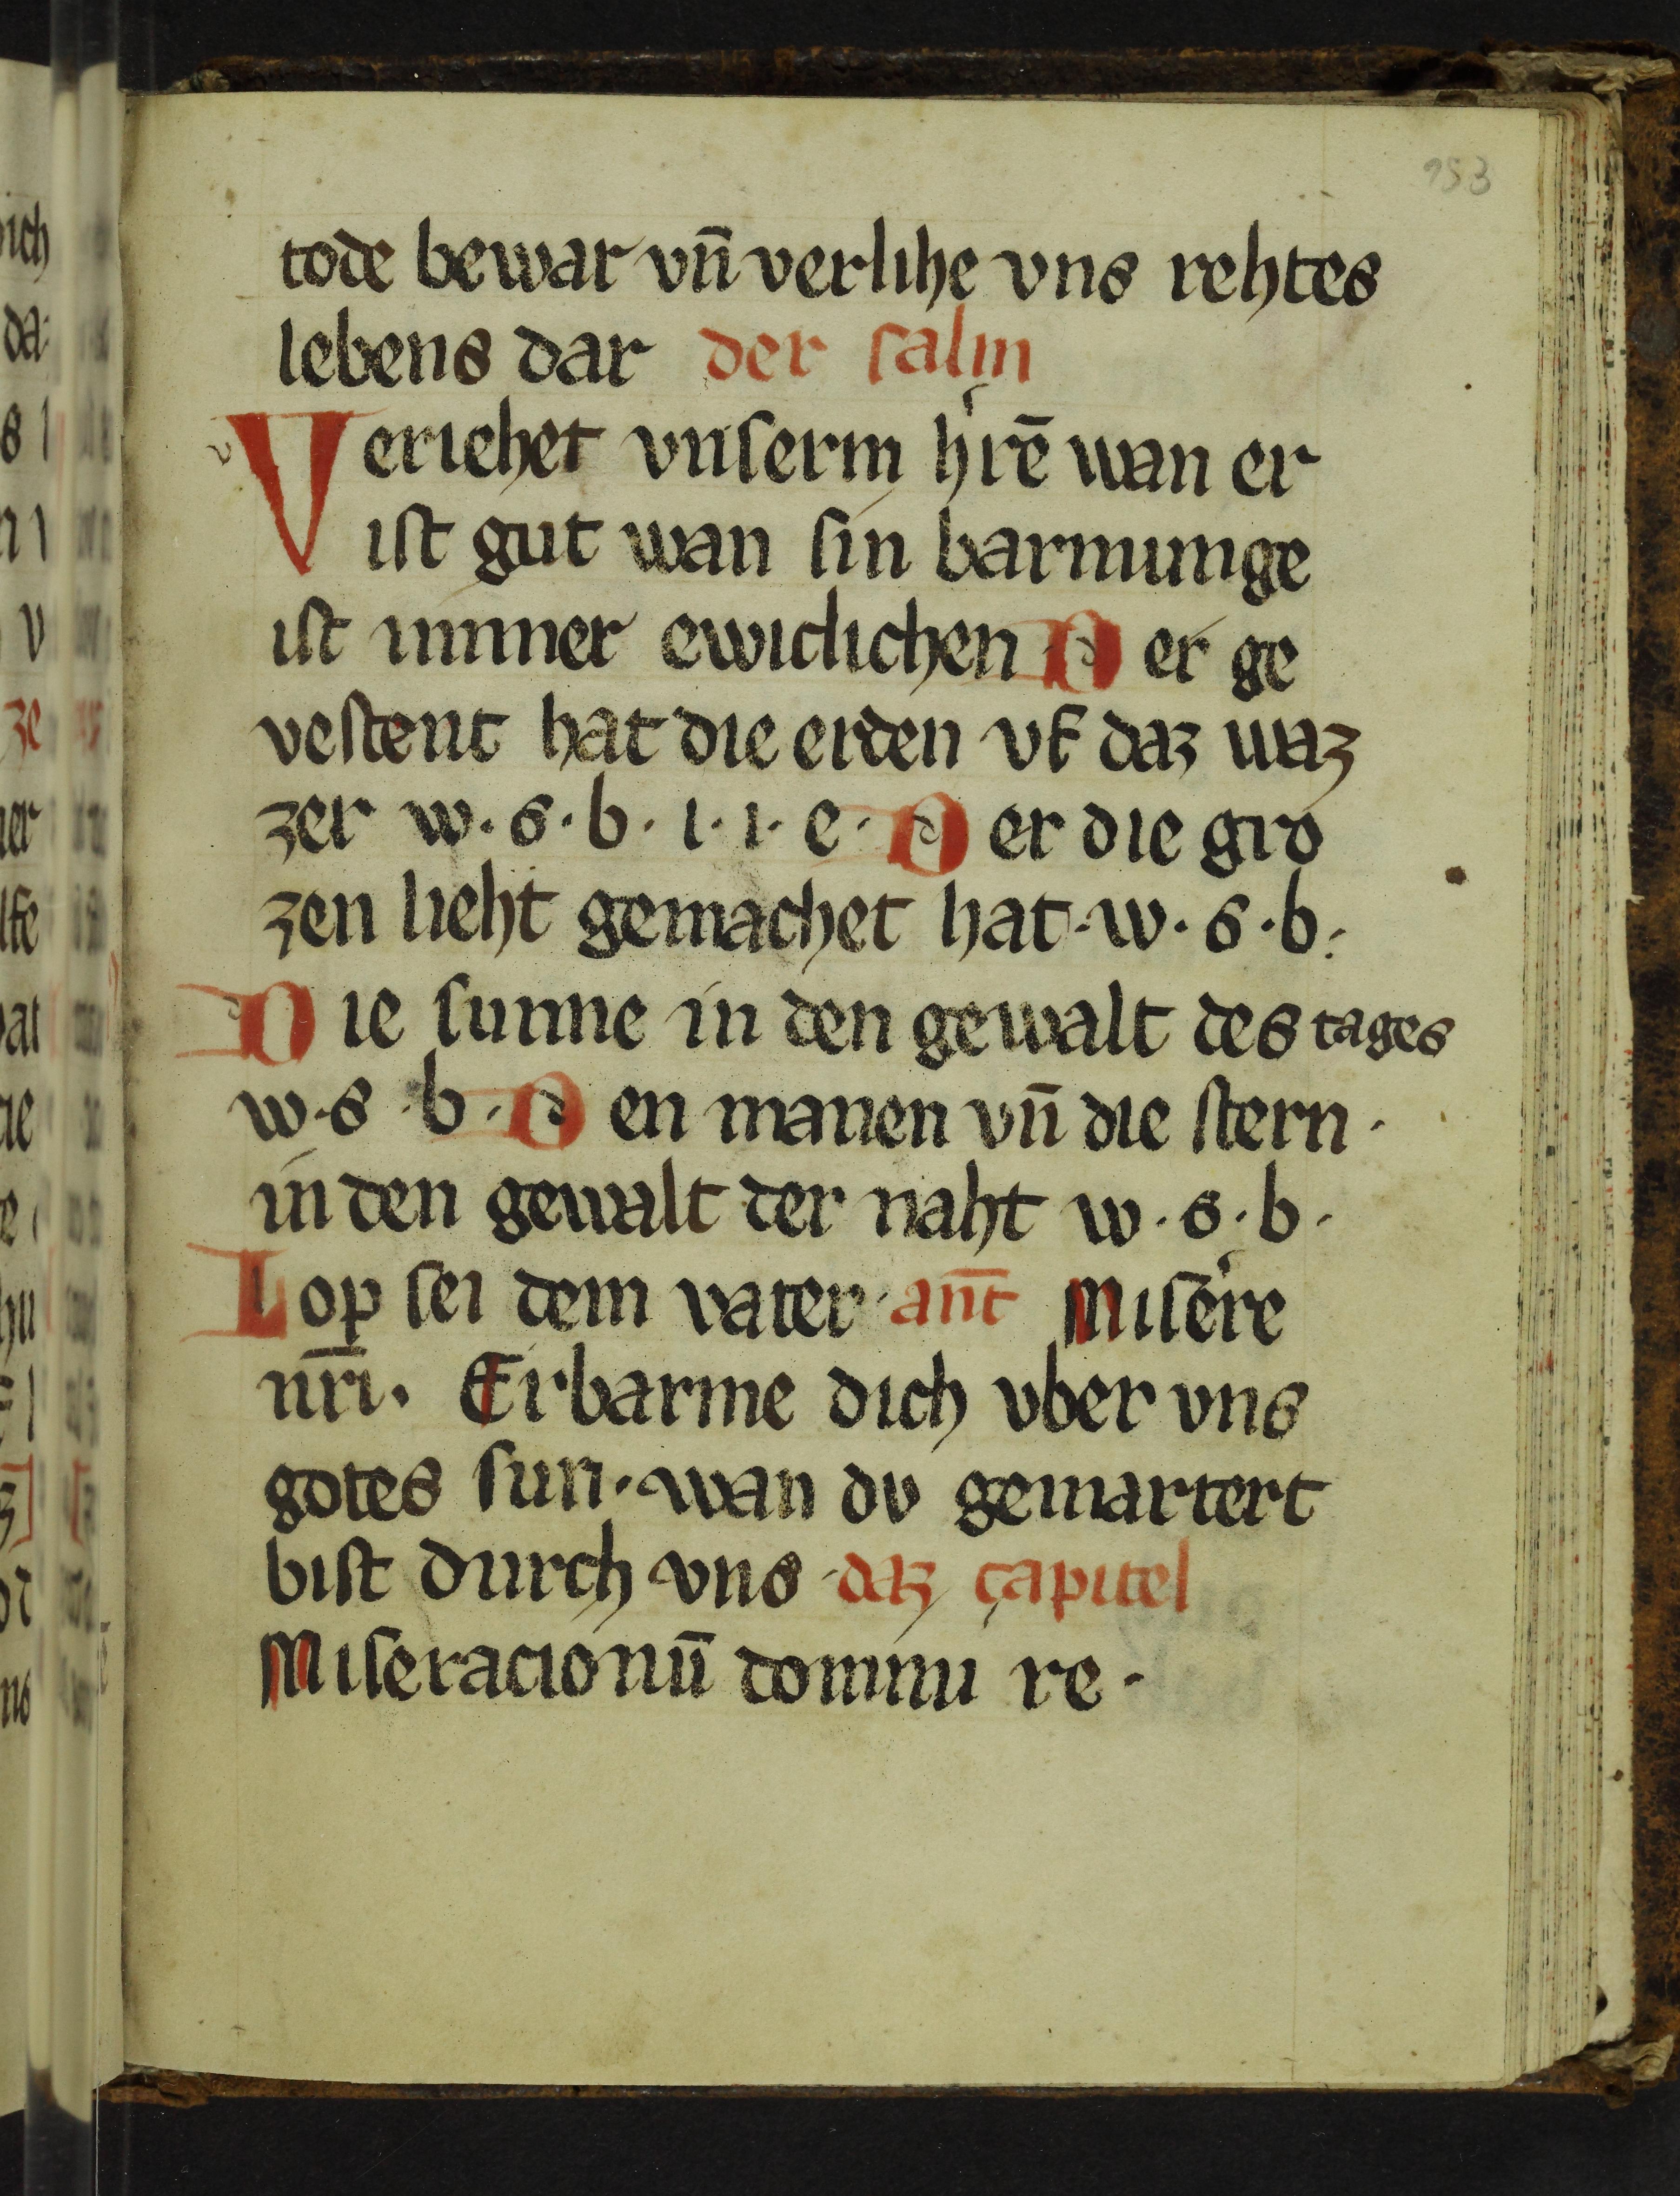 153
tode bewar vn̄ verlihe vns rehtes
lebens dar der salm
Veriehet vnserm hr̄ē wan er
ist gut wan sin barmunge
ist immer ewiclichen D er ge
vestent hat die erden vf daz waz
zer w · s · b · i · i · e · D er die gro
zen lieht gemachet hat · w · s · b ·
D ie sunne in den gewalt des tages
w · s · b · D en manen vn̄ die stern ·
in den gewalt der naht w · s · b ·
Lop sei dem vater · ant̄ Misere
nr̄i · Erbarme dich vber vns
gotes sun · wan dv gemartert
bist durch vns · daz capitel
Miseracionū domini re ·